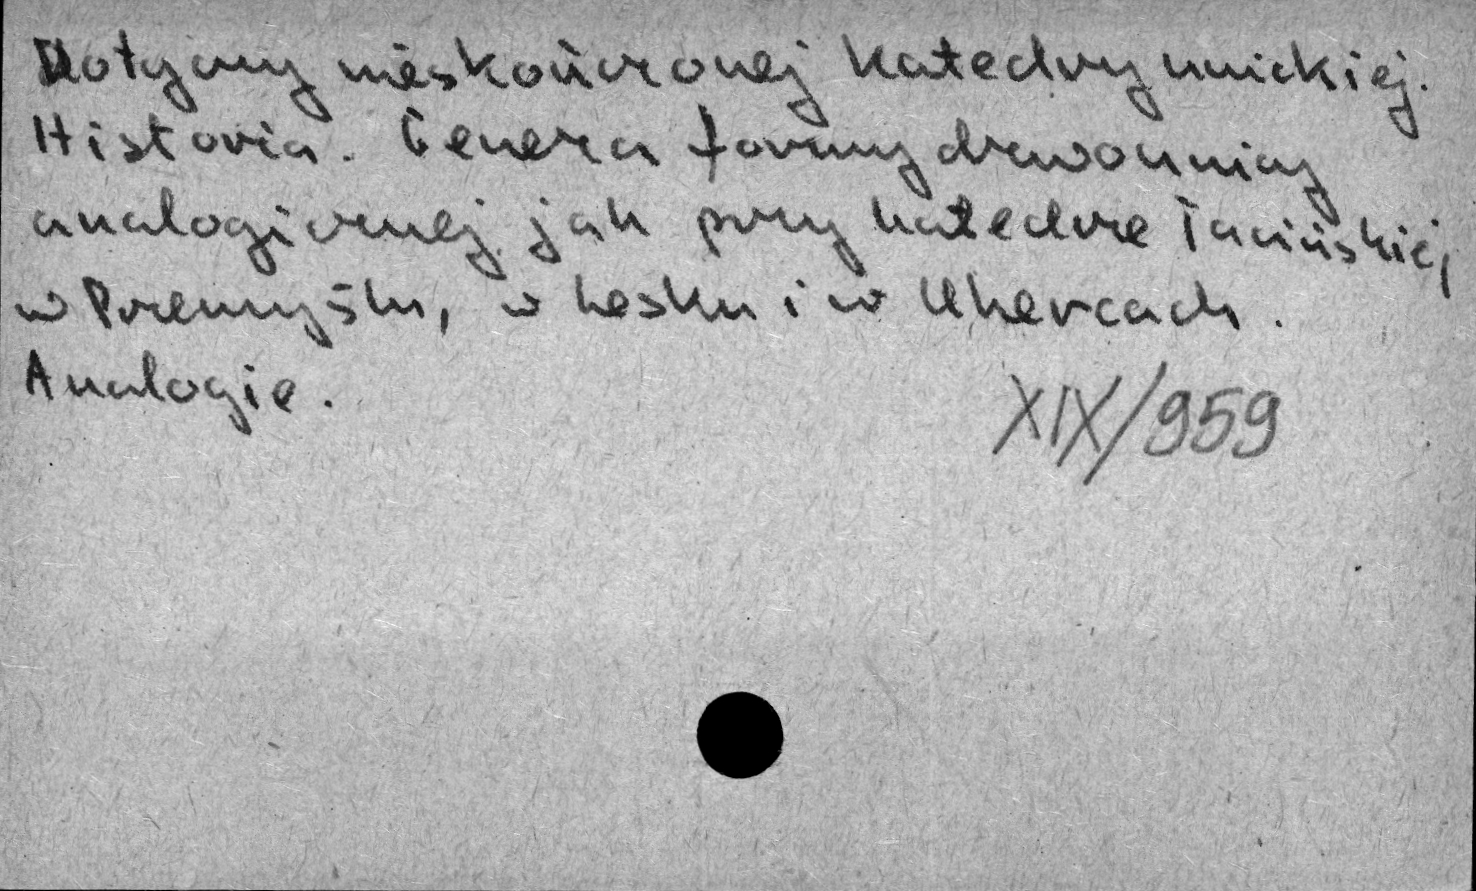 Dotyczy nieskończonej katedry unickiej.
Historia. Geneza formy dzwonnicy
analogicznej jak przy katedrze łacińskiej
w Przemyślu, w Lesku i w Uhercach.
Analogie.
XIX/959